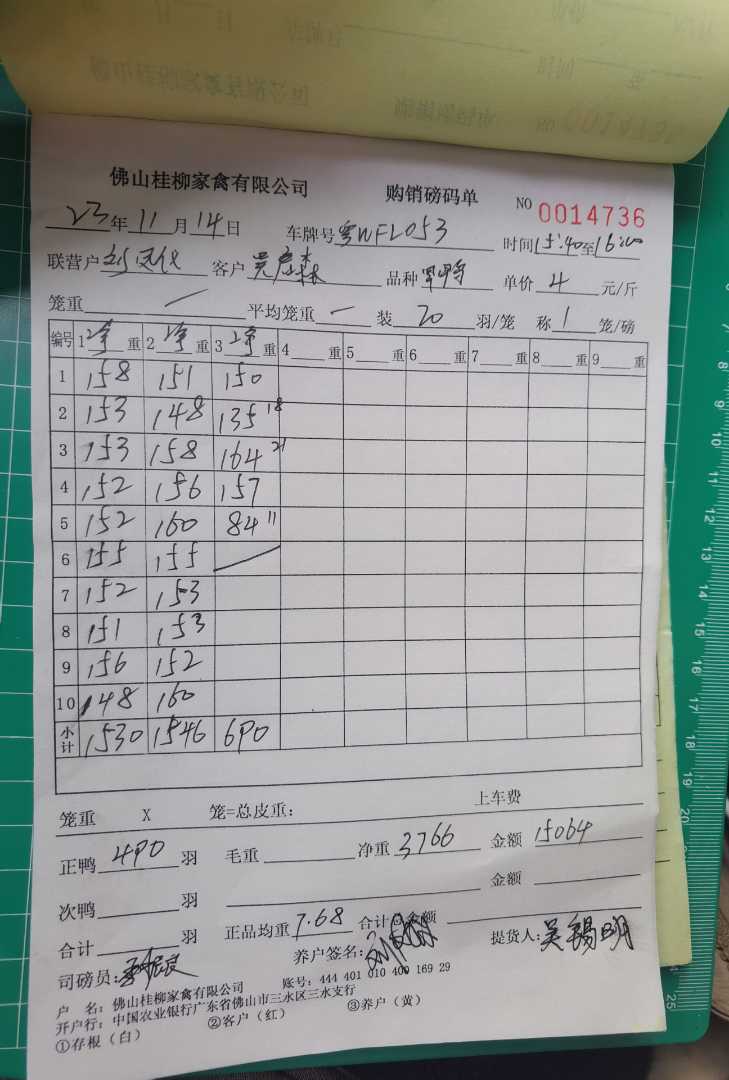 佛山桂柳家禽有限公司 购销磅码单 NO 0014736
23年11月14日 车牌号粤WFL053 时间15:40至16:00
联营户 客户吴彦森 品种 单价4元/斤
笼重 / 平均笼重 — 装20羽/笼 称1笼/磅
编号 1净重 2净重 3净重 4重 5重 6重 7重 8重 9重
1 158 151 150
2 153 148 135 18
3 153 158 164 21
4 152 156 157
5 152 160 84 11
6 155 155
7 152 153
8 151 153
9 156 152
10 148 160
小计 1530 1546 690
笼重 X 笼=总皮重: 上车费
正鸭490羽 毛重 净重3766 金额15064
次鸭 羽 金额
合计 羽 正品均重7.68 合计总金额
司磅员: 养户签名: 提货人:吴锡明
户 名:佛山桂柳家禽有限公司 账号:444 401 010 400 169 29
开户行:中国农业银行广东省佛山市三水区三水支行
①存根(白) ②客户(红) ③养户(黄)